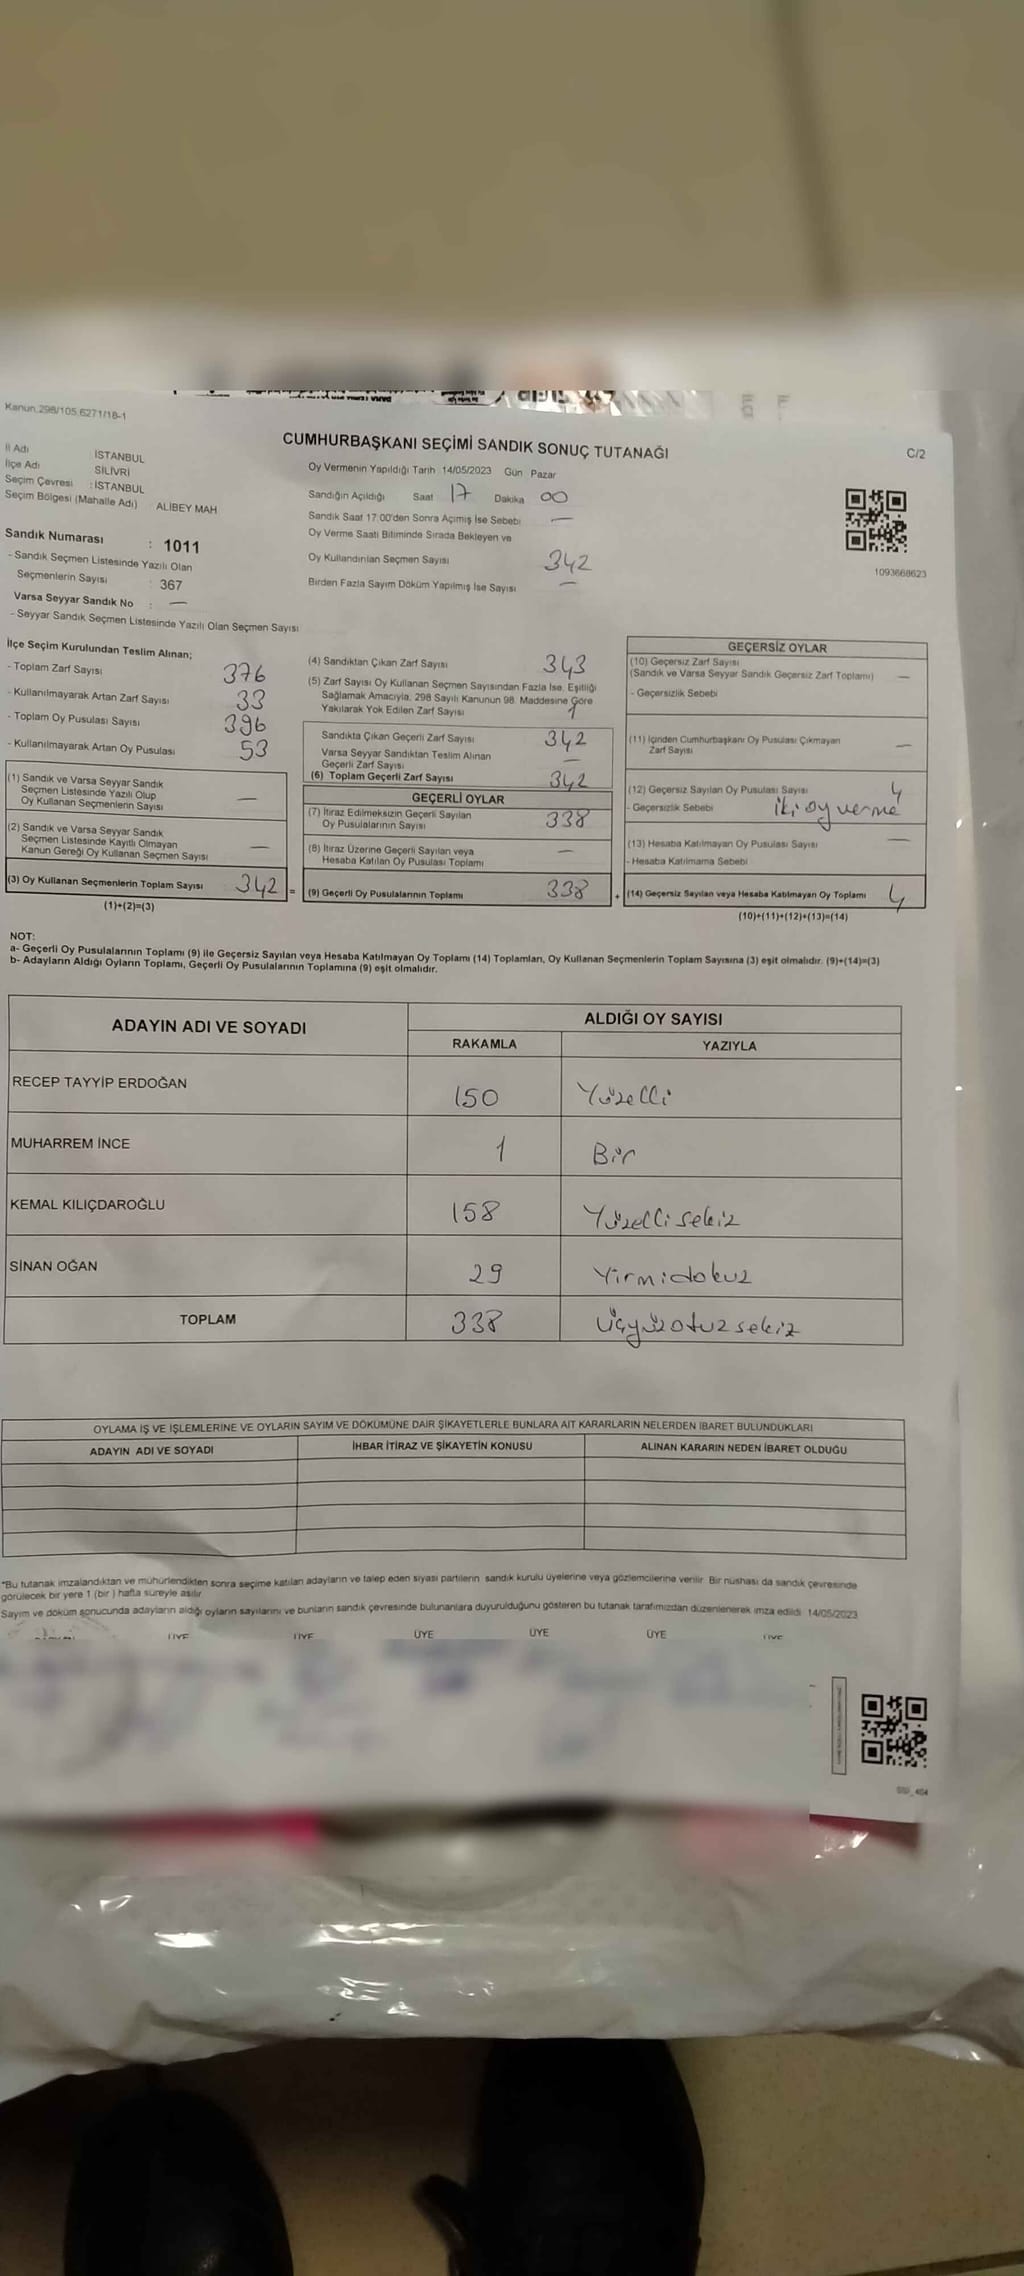 Kanun.298/105,6271/18-1
CUMHURBAŞKANI SEÇİMİ SANDIK SONUÇ TUTANAĞI
C/2
İl Adı : İSTANBUL
İlçe Adı SİLİVRİ
Seçim Çevresi : İSTANBUL
Seçim Bölgesi (Mahalle Adı) ALİBEY MAH
Sandık Numarası : 1011
- Sandık Seçmen Listesinde Yazılı Olan
Seçmenlerin Sayısı : 367
Varsa Seyyar Sandık No : —
- Seyyar Sandık Seçmen Listesinde Yazılı Olan Seçmen Sayısı
Oy Vermenin Yapıldığı Tarih 14/05/2023 Gün Pazar
Sandığın Açıldığı Saat 17 Dakika 00
Sandık Saat 17.00'den Sonra Açımış İse Sebebi —
Oy Verme Saati Bitiminde Sırada Bekleyen ve
Oy Kullandırılan Seçmen Sayısı 342
Birden Fazla Sayım Döküm Yapılmış İse Sayısı —
1093668623
İlçe Seçim Kurulundan Teslim Alınan;
- Toplam Zarf Sayısı 376
- Kullanılmayarak Artan Zarf Sayısı 33
- Toplam Oy Pusulası Sayısı 396
- Kullanılmayarak Artan Oy Pusulası 53
(1) Sandık ve Varsa Seyyar Sandık
Seçmen Listesinde Yazılı Olup
Oy Kullanan Seçmenlerin Sayısı —
(2) Sandık ve Varsa Seyyar Sandık
Seçmen Listesinde Kayıtlı Olmayan
Kanun Gereği Oy Kullanan Seçmen Sayısı —
(3) Oy Kullanan Seçmenlerin Toplam Sayısı 342 =
(1)+(2)=(3)
(4) Sandıktan Çıkan Zarf Sayısı 343
(5) Zarf Sayısı Oy Kullanan Seçmen Sayısından Fazla İse, Eşitliği
Sağlamak Amacıyla, 298 Sayılı Kanunun 98. Maddesine Göre
Yakılarak Yok Edilen Zarf Sayısı 1
Sandıkta Çıkan Geçerli Zarf Sayısı 342
Varsa Seyyar Sandıktan Teslim Alınan
Geçerli Zarf Sayısı —
(6) Toplam Geçerli Zarf Sayısı 342
GEÇERLİ OYLAR
(7) İtiraz Edilmeksizin Geçerli Sayılan
Oy Pusulalarının Sayısı 338
(8) İtiraz Üzerine Geçerli Sayılan veya
Hesaba Katılan Oy Pusulası Toplamı —
(9) Geçerli Oy Pusulalarının Toplamı 338 +
GEÇERSİZ OYLAR
(10) Geçersiz Zarf Sayısı
(Sandık ve Varsa Seyyar Sandık Geçersiz Zarf Toplamı) —
- Geçersizlik Sebebi
(11) İçinden Cumhurbaşkanı Oy Pusulası Çıkmayan
Zarf Sayısı —
(12) Geçersiz Sayılan Oy Pusulası Sayısı 4
- Geçersizlik Sebebi İki oy verme
(13) Hesaba Katılmayan Oy Pusulası Sayısı —
- Hesaba Katılmama Sebebi
(14) Geçersiz Sayılan veya Hesaba Katılmayan Oy Toplamı 4
(10)+(11)+(12)+(13)=(14)
NOT:
a- Geçerli Oy Pusulalarının Toplamı (9) ile Geçersiz Sayılan veya Hesaba Katılmayan Oy Toplamı (14) Toplamları, Oy Kullanan Seçmenlerin Toplam Sayısına (3) eşit olmalıdır. (9)+(14)=(3)
b- Adayların Aldığı Oyların Toplamı, Geçerli Oy Pusulalarının Toplamına (9) eşit olmalıdır.
ADAYIN ADI VE SOYADI
ALDIĞI OY SAYISI
RAKAMLA YAZIYLA
RECEP TAYYİP ERDOĞAN 150 Yüzelli
MUHARREM İNCE 1 Bir
KEMAL KILIÇDAROĞLU 158 Yüzelli sekiz
SİNAN OĞAN 29 Yirmidokuz
TOPLAM 338 Üçyüzotuzsekiz
OYLAMA İŞ VE İŞLEMLERİNE VE OYLARIN SAYIM VE DÖKÜMÜNE DAİR ŞİKAYETLERLE BUNLARA AİT KARARLARIN NELERDEN İBARET BULUNDUKLARI
ADAYIN ADI VE SOYADI İHBAR İTİRAZ VE ŞİKAYETİN KONUSU ALINAN KARARIN NEDEN İBARET OLDUĞU
*Bu tutanak imzalandıktan ve mühürlendikten sonra seçime katılan adayların ve talep eden siyasi partilerin sandık kurulu üyelerine veya gözlemcilerine verilir. Bir nüshası da sandık çevresinde
görülecek bir yere 1 (bir ) hafta süreyle asılır.
Sayım ve döküm sonucunda adayların aldığı oyların sayılarını ve bunların sandık çevresinde bulunanlara duyurulduğunu gösteren bu tutanak tarafımızdan düzenlenerek imza edildi. 14/05/2023
ÜYE ÜYE ÜYE ÜYE ÜYE ÜYE